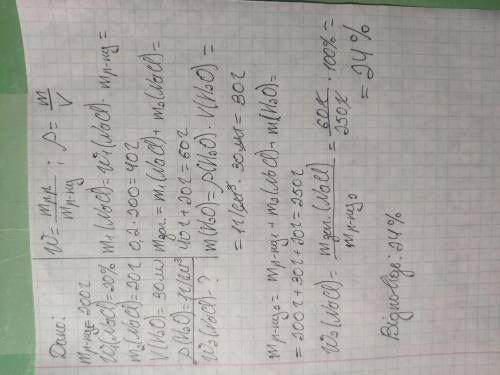 Дано:
m р-ну₁ = 200г
W₁(NaCl)=20%
m₂(NaCl)=20г
V(H₂O)=30мл
ρ(H₂O)=1г/см³
W₂(NaCl)-?
W = m р.р / m р-ну ; ρ = m / V
m₁(NaCl)=W₁(NaCl)· m р-ну =
0,2·200=40г
m заг.= m₁(NaCl)+ m₂(NaCl)=
40г+20г=60г
m(H₂O)=ρ(H₂O)·V(H₂O)=
=1г/см³·30мл=30г
m р-ну₂= m р-ну₁+ m₂(NaCl)+ m(H₂O)=
=200г+30г+20г=250г
W₂(NaCl)= m заг.(NaCl) / m р-ну₂ = 60г / 250г · 100% =
= 24%
Відповідь: 24%